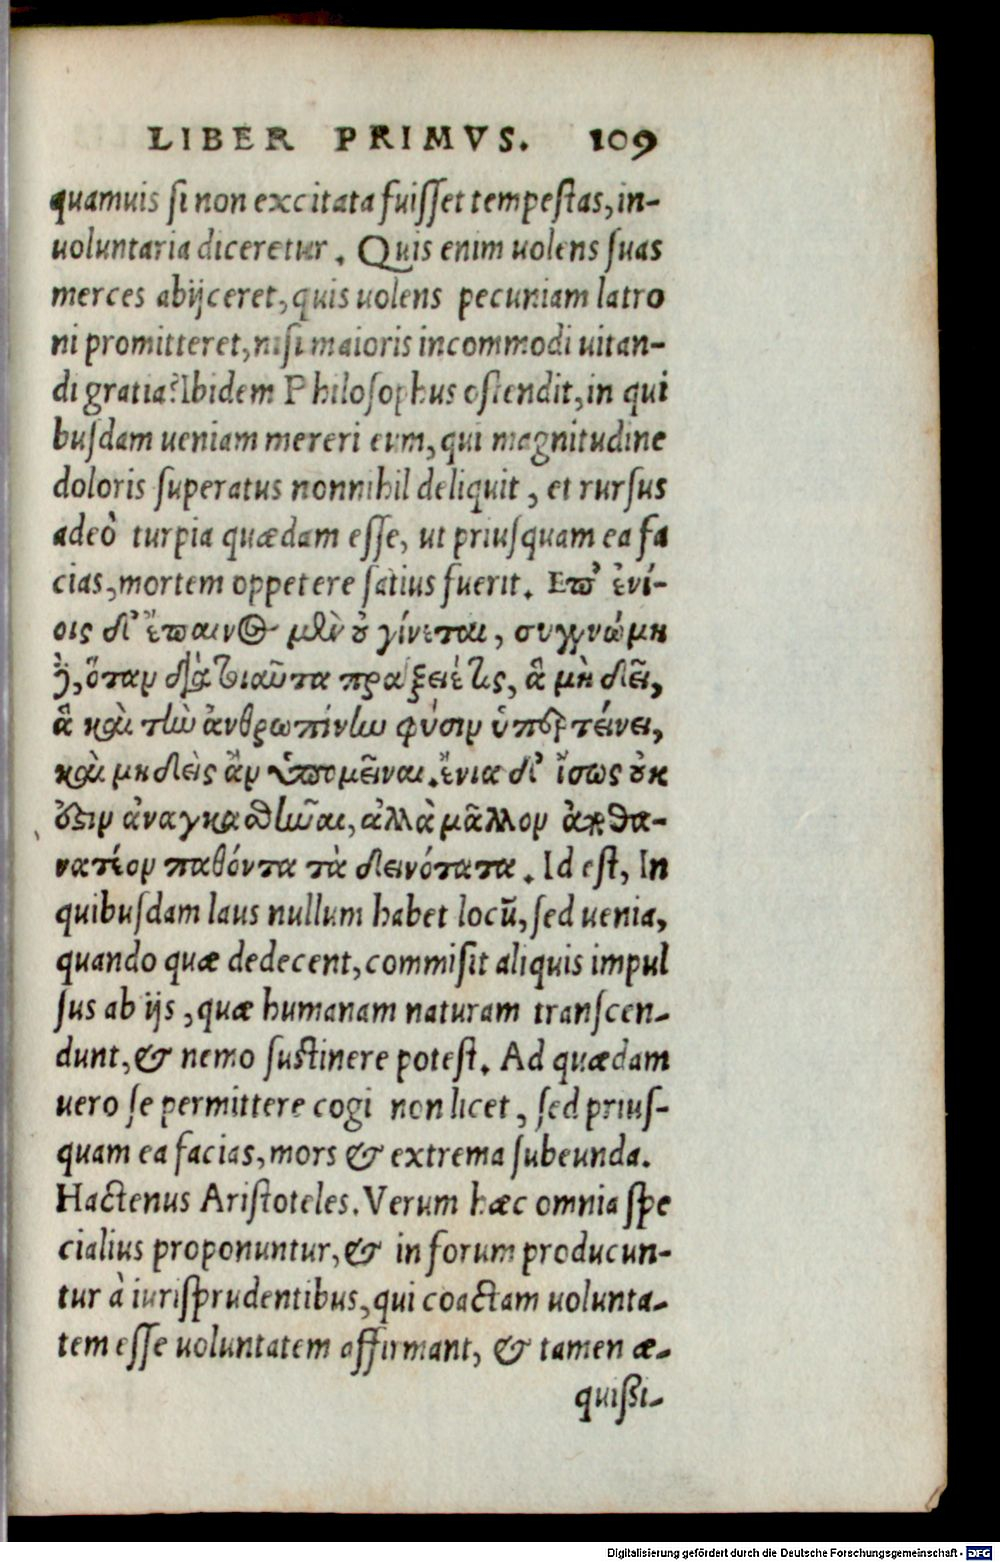 LIBER PRIMVS. 109
quamuis si non excitata fuisset tempestas, in-
uoluntaria diceretur. Quis enim uolens suas
merces abijceret, quis uolens pecuniam latro
ni promitteret, nisi maioris incommodi uitan-
di gratia? Ibidem Philosophus ostendit, in qui
busdam ueniam mereri eum, qui magnitudine
doloris superatus nonnihil deliquit, et rursus
adeò turpia quædam esse, ut priusquam ea fa
cias, mortem oppetere satius fuerit. Επ' ἐνί-
οις δ' ἔπαινος μὲν οὐ γίνεται, συγγνώμη
δ, ὅταν διὰ τοιαῦτα πράξῃ τις, ἃ μὴ δεῖ,
ἃ καὶ τὴν ἀνθρωπίνην φύσιν ὑπερτείνει,
καὶ μηδεὶς ἂν ὑπομεῖναι. ἔνια δ' ἴσως οὐκ
ἔστιν ἀναγκασθῆναι, ἀλλὰ μᾶλλον ἀποθα-
νατέον παθόντα τὰ δεινότατα. Id est, In
quibusdam laus nullum habet locũ, sed uenia,
quando quæ dedecent, commisit aliquis impul
sus ab ijs, quæ humanam naturam transcen-
dunt, & nemo sustinere potest. Ad quædam
uero se permittere cogi non licet, sed prius-
quam ea facias, mors & extrema subeunda.
Hactenus Aristoteles. Verum hæc omnia spe
cialius proponuntur, & in forum producun-
tur à iurisprudentibus, qui coactam uolunta-
tem esse uoluntatem affirmant, & tamen æ-
quißi-
Digitalisierung gefördert durch die Deutsche Forschungsgemeinschaft - DFG